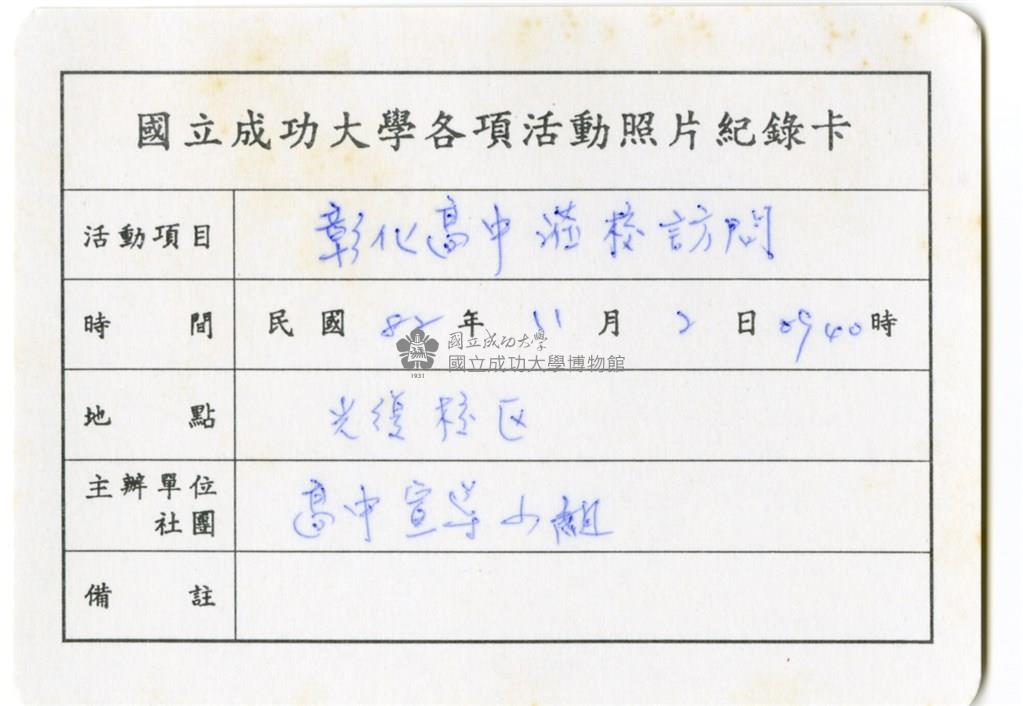 國立成功大學各項活動照片紀錄卡
活動項目 彰化高中蒞校訪問
時間 民國 82 年 11 月 2 日 0940 時
國立成功大學
國立成功大學博物館
1931
地點 光復校区
主辦單位社團 高中宣导小組
備註